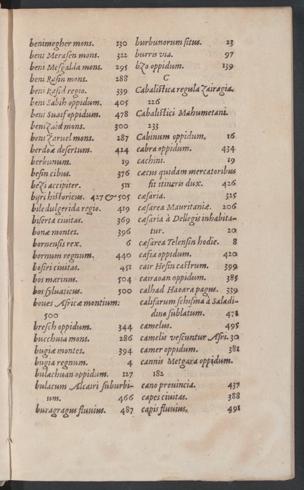 benimegher mons. 130
beni Merasen mons. 312
beni Mesgalda mons. 295
beni Rasin mons. 288
beni Rasid regio. 339
beni Sabih oppidum. 405
beni Suaif oppidum. 478
beni Zaid mons. 300
beni Zaruel mons. 287
berdoa desertum. 424
berbunum. 19
besin cibus. 376
bezi accipiter. 511
historicus. 427 & 505
biledulgerida regio. 419
biserta ciuitas. 369
bona montes. 396
bornensis rex. 6
bornum regnum. 440
bosiri ciuitas. 451
bos marinus. 504
bos syluaticus. 500
boues Africæ montium:
500
bresch oppidum. 344
bucchuia mons. 286
bugiæ montes. 394
bugia regnum. 4
bulachuan oppidum. 127
bulacum Alcairi suburbi-
um. 466
buragragus fluuius. 487
burbunorum situs. 23
burris via. 97
bzo oppidum. 139
C
Cabalistica regula Zairagia.
226
Cabalistici Mahumetani.
233
Cabinum oppidum, 16.
cabra oppidum. 434
cachini. 19
cæcus quidam mercatoribus
fit itineris dux. 426
cæsaria. 325
cæsarea Mauritaniæ. 206
cæsaria à Dellegis inhabita-
tur. 20
cæsarea Telensin hodie. 8
casia oppidum. 420
cair Hesin castrum. 399
cairaoan oppidum. 385
calhad Haoara pagus. 339
califarum schisma à Saladi-
dino sublatum. 471
camelus. 495
camelis vescuntur Afri. 30
camer oppidum. 381
cannis Metgara oppidum.
182
cano prouincia. 437
capes ciuitas. 388
capis fluuius. 491